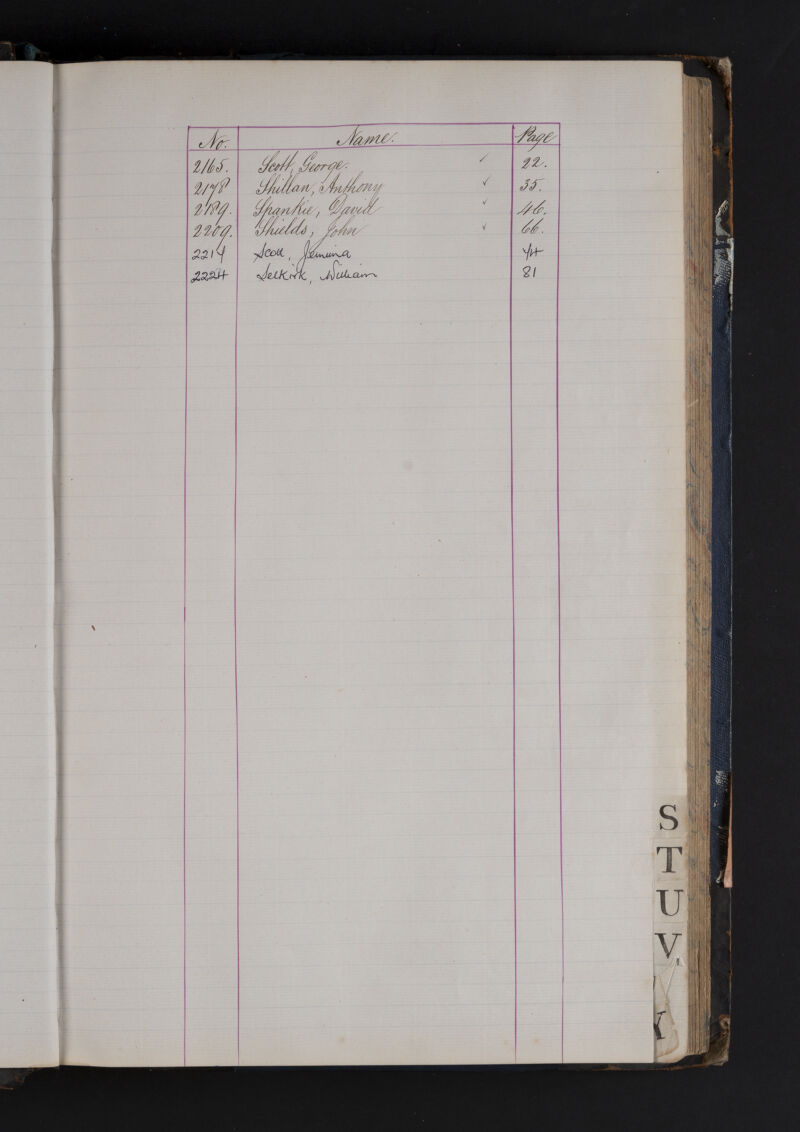 No. Name. Page
2165. Scott, George. ✓ 22.
2178 Shillan, Anthony ✓ 35.
2189. Spankie, David ✓ 46.
2209. Shields, John ✓ 66.
2217 Scott, Jemima 74
2224 Selkirk, William 81
S
T
U
V
Y